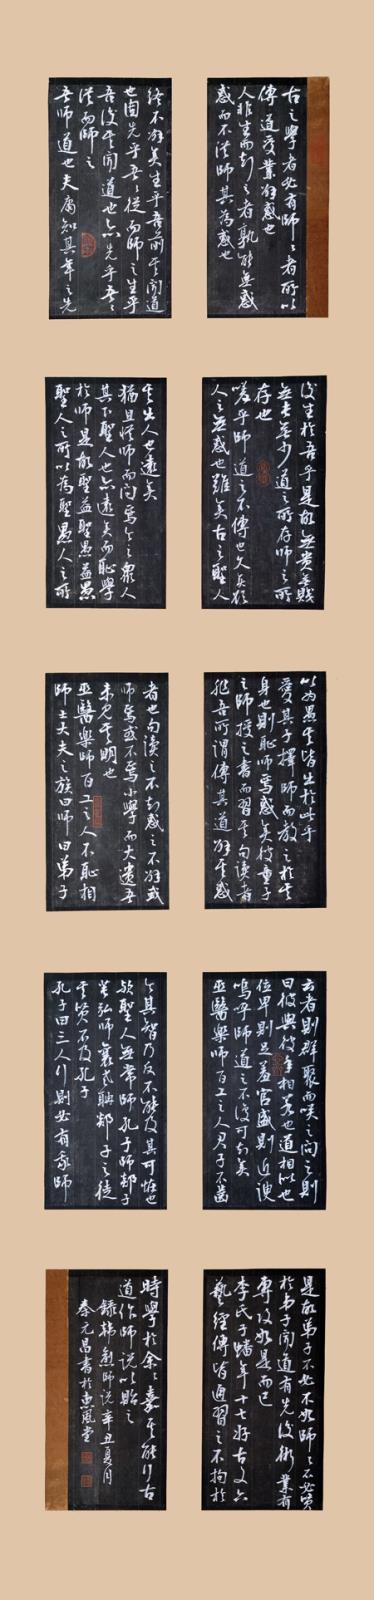 古之學者必有師々者所以
傳道受業解惑也
人非生而知之者孰能無惑
惑而不從師其為惑也
終不解矣生乎吾前其聞道
也固先乎吾々從而師之生乎
吾後其聞道也亦先乎吾々
從而師之
吾師道也夫庸知其年之先
後生於吾乎是故無貴無賤
無長無少道之所存師之所
存也
嗟乎師道之不傳也久矣欲
人之無惑也難矣古之聖人
其出人也遠矣
猶且從師而問焉今之眾人
其下聖人也亦遠矣而恥學
於師是故聖益聖愚益愚
聖人之所以為聖愚人之所
以為愚其皆出於此乎
愛其子擇師而教之於其
身也則恥師焉惑矣彼童子
之師授之書而習其句讀者
非吾所謂傳其道解其惑
者也句讀之不知惑之不解或
師焉或不焉小學而大遺吾
未見其明也
巫醫樂師百工之人不恥相
師士大夫之族曰師曰弟子
云者則群聚而笑之問之則
曰彼與彼年相若也道相似也
位卑則足羞官盛則近諛
嗚呼師道之不復可知矣
巫醫樂師百工之人君子不齒
今其智乃反不能及其可怪也
歟聖人無常師孔子師郯子
萇弘師襄老聃郯子之徒
其賢不及孔子
孔子曰三人行則必有我師
是故弟子不必不如師師不必賢
於弟子聞道有先後術業有
專攻如是而已
李氏子蟠年十七好古文六
藝經傳皆通習之不拘於
時學於余余嘉其能行古
道作師說以貽之
錄韓愈師說辛丑夏月
秦元昌書於惠風堂